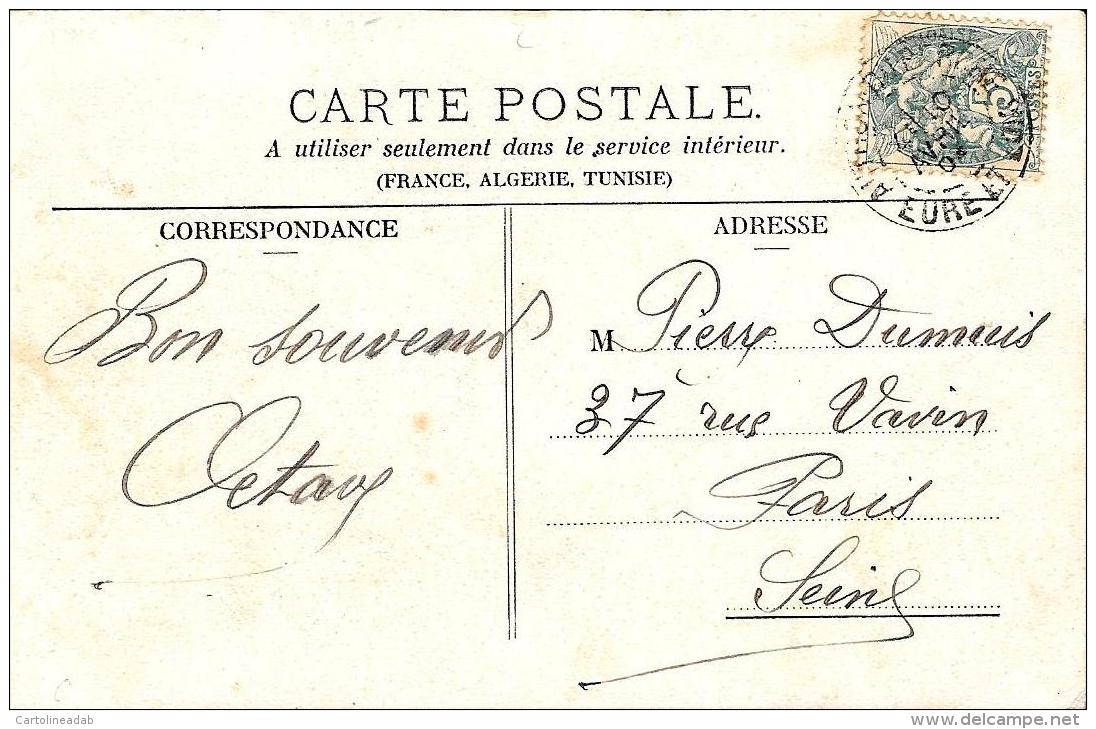 CARTE POSTALE.
A utiliser seulement dans le service intérieur.
(FRANCE, ALGERIE, TUNISIE)
CORRESPONDANCE
Bon souvenir
Octave
ADRESSE
M Pierre Dumuis
37 rue Vavin
Paris
Seine
5
EURE
Cartolineadab
delcampe.net